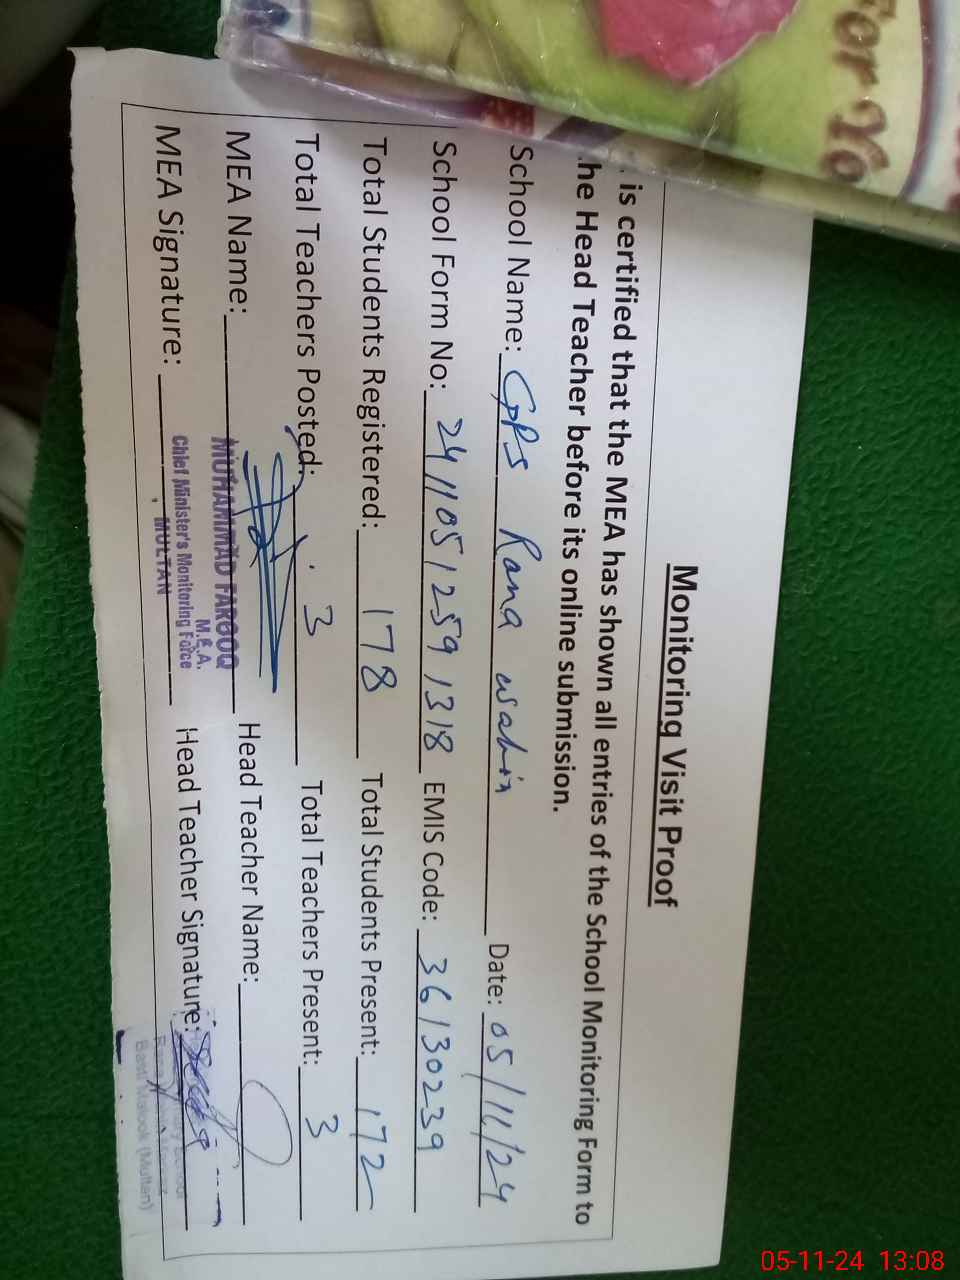 For Yo
Monitoring Visit Proof
is certified that the MEA has shown all entries of the School Monitoring Form to
he Head Teacher before its online submission.
School Name: GPS Rana wahin Date: 05/11/24
School Form No: 24110512591318 EMIS Code: 36130239
Total Students Registered: 178 Total Students Present: 172
Total Teachers Posted: 3 Total Teachers Present: 3
MEA Name: Head Teacher Name:
MEA Signature: Head Teacher Signature:
MUHAMMAD FAROOQ
M.E.A.
Chief Minister's Monitoring Force
MULTAN
School
Basti Malook (Multan)
05-11-24 13:08